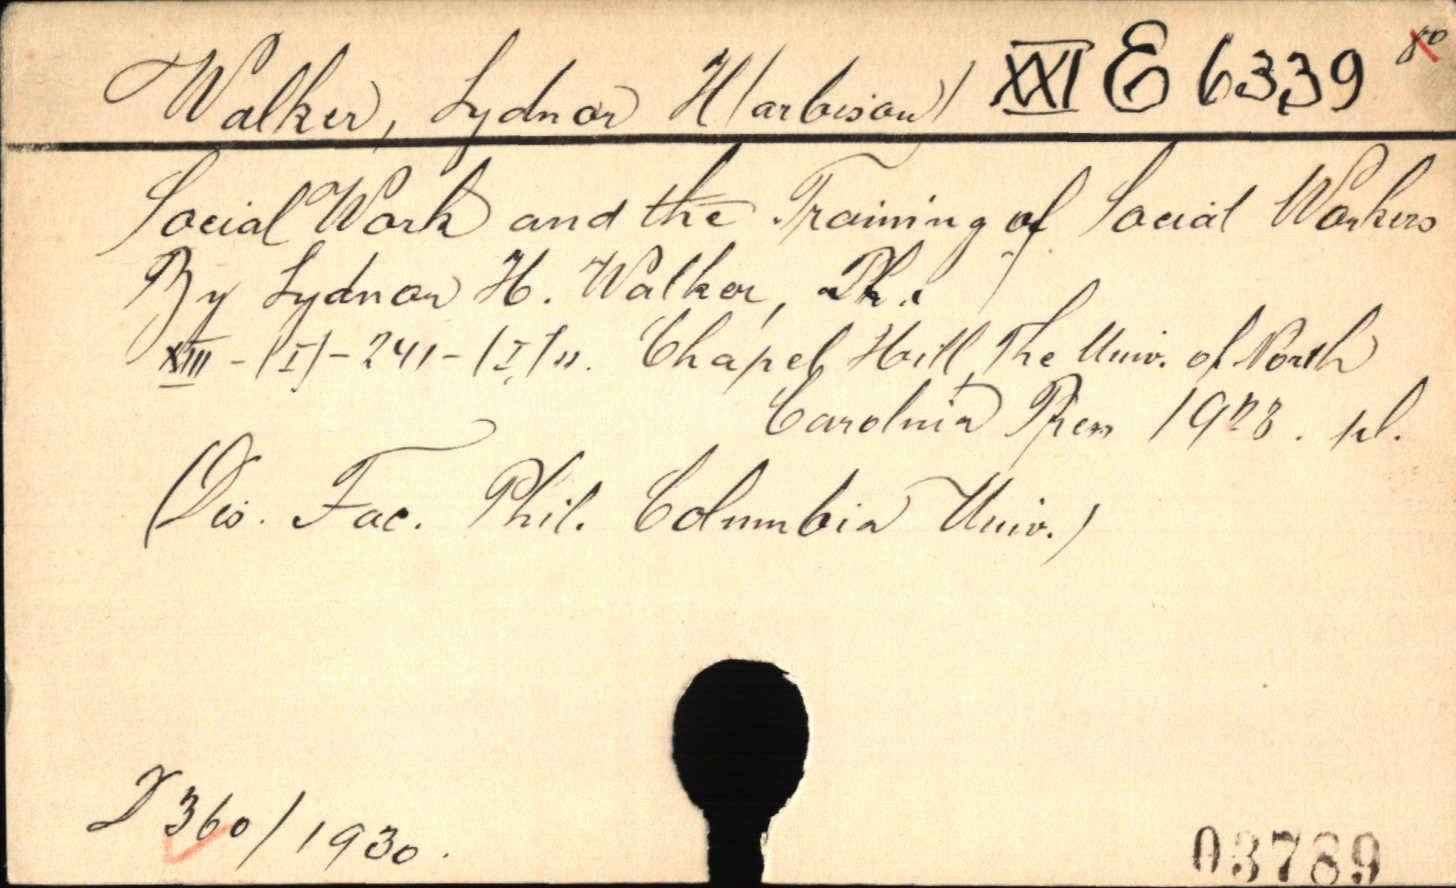 Walker, Lydnor H(arbison) XXI E 6339 8°
Social Work and the Training of Social Workers
By Lydnor H. Walker, Ph.
XIII - (I) - 241 - (I) ll. Chapel Hill, The Univ. of North
Carolina Press 1928. pl.
(Dis. Fac. Phil. Columbia Univ.)
D 360/1930.
03789